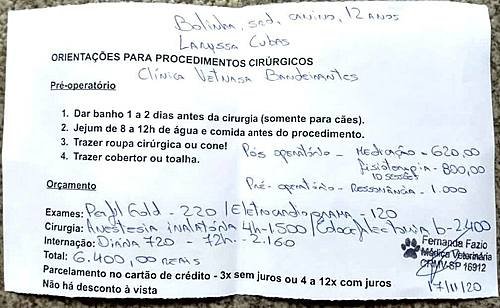 Bolinha, srd, canino, 12 anos
Laryssa Cubas
ORIENTAÇÕES PARA PROCEDIMENTOS CIRÚRGICOS
Clínica Vetnasa Bandeirantes
Pré-operatório
1. Dar banho 1 a 2 dias antes da cirurgia (somente para cães).
2. Jejum de 8 a 12h de água e comida antes do procedimento.
3. Trazer roupa cirúrgica ou cone!
4. Trazer cobertor ou toalha.
Pós operatório - Medicação - 620,00
Fisioterapia - 800,00
10 sessões
Pré-operatório - Ressonância - 1.000
Orçamento
Exames: Perfil Gold - 220 / Eletrocardiograma - 120
Cirurgia: Anestesia inalatória 4h - 1500 / 2.400
Internação: Diária 720 - 72h - 2.160
Total: 6.400,00 reais
Parcelamento no cartão de crédito - 3x sem juros ou 4 a 12x com juros
Não há desconto à vista
Fernanda Fazio
Médica Veterinária
CRMV-SP 16912
17/11/20